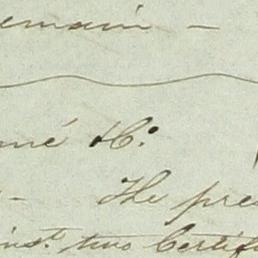 emain —
né H:
- The pre
inst. two Certif